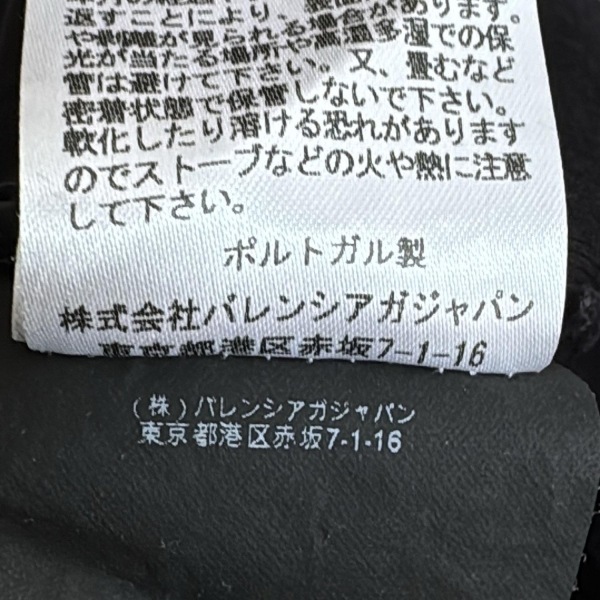 返すことにより、
や剥離が見られる場合があります。
光が当たる場所や高温多湿での保
管は避けて下さい。又、畳むなど
密着状態で保管しないで下さい。
軟化したり溶ける恐れがあります
のでストーブなどの火や熱に注意
して下さい。
ポルトガル製
株式会社バレンシアガジャパン
東京都港区赤坂7-1-16
(株)バレンシアガジャパン
東京都港区赤坂7-1-16